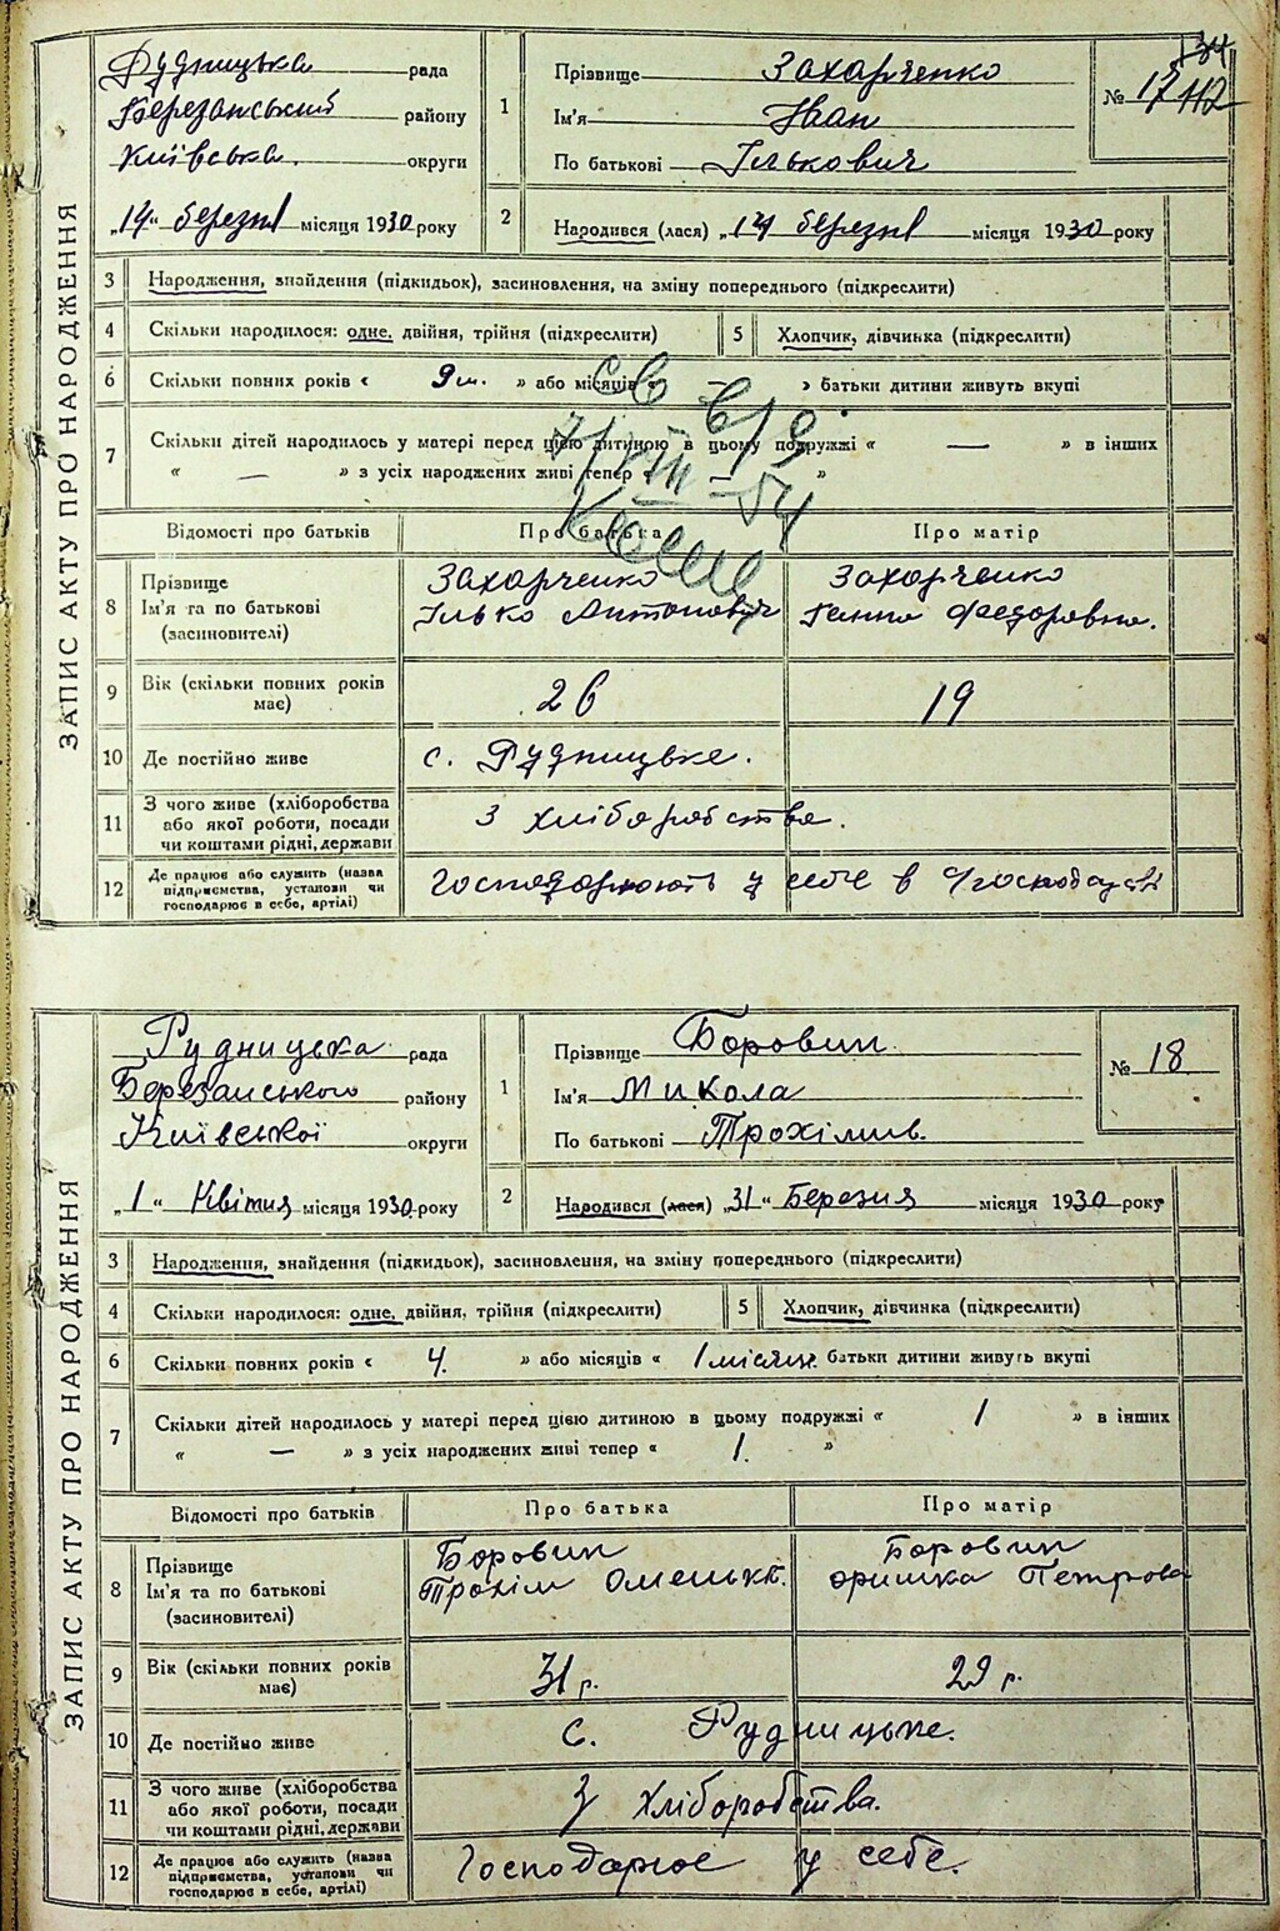 ЗАПИС АКТУ ПРО НАРОДЖЕННЯ
Рудницька рада
Березанський району
Київська. округи
„14“ березня місяця 1930 року
1 Прізвище Захарченко
Ім'я Іван
По батькові Ількович
№ 17 112
34
2 Народився (лася) „14 березня місяця 1930 року
3 Народження, знайдення (підкидьок), засиновлення, на зміну попереднього (підкреслити)
4 Скільки народилося: одне, двійня, трійня (підкреслити) 5 Хлопчик, дівчинка (підкреслити)
6 Скільки повних років « 9 м. » або місяців « — » батьки дитини живуть вкупі
7 Скільки дітей народилось у матері перед цією дитиною в цьому подружжі « — » в інших
« — » з усіх народжених живі тепер « — »
св в/9
7/VIII – 54
Відомості про батьків Про батька Про матір
8 Прізвище
Ім'я та по батькові
(засиновителі)
Захарченко
Ілько Антонович
Захарченко
Ганна Федоровна.
9 Вік (скільки повних років
має)
26 19
10 Де постійно живе с. Рудницьке.
11 З чого живе (хліборобства
або якої роботи, посади
чи коштами рідні, держави
З хліборобства.
12 Де працює або служить (назва
підприємства, установи чи
господарює в себе, артілі)
господарюють у себе в
ЗАПИС АКТУ ПРО НАРОДЖЕННЯ
Рудницька рада
Березанського району
Київської округи
„1“ Квітня місяця 1930. року
1 Прізвище Боровик
Ім'я Микола
По батькові Трохімив.
№ 18
2 Народився (лася) „31“ Березня місяця 1930 року
3 Народження, знайдення (підкидьок), засиновлення, на зміну попереднього (підкреслити)
4 Скільки народилося: одне, двійня, трійня (підкреслити) 5 Хлопчик, дівчинка (підкреслити)
6 Скільки повних років « 4. » або місяців « 1 місяць. батьки дитини живуть вкупі
7 Скільки дітей народилось у матері перед цією дитиною в цьому подружжі « 1 » в інших
« — » з усіх народжених живі тепер « 1. »
Відомості про батьків Про батька Про матір
8 Прізвище
Ім'я та по батькові
(засиновителі)
Боровик
Трохім
Боровик
Оришка Петрова
9 Вік (скільки повних років
має)
31 р. 29 р.
10 Де постійно живе С. Рудницьке.
11 З чого живе (хліборобства
або якої роботи, посади
чи коштами рідні, держави
З хліборобства.
12 Де працює або служить (назва
підприємства, установи чи
господарює в себе, артілі)
Господарює у себе.